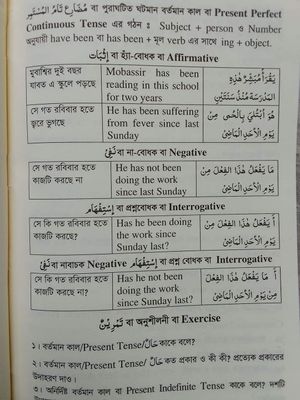 مُضَارِعْ تَامُّ الْمُسْتَمِرْ বা পুরাঘটিত ঘটমান বর্তমান কাল বা Present Perfect
Continuous Tense এর গঠন : Subject + person ও Number
অনুযায়ী have been বা has been + মূল verb এর সাথে ing + object.
إِثْبَاتْ বা হ্যাঁ-বোধক বা Affirmative
মুবাশ্বির দুই বছর যাবত এ স্কুলে পড়ছে
Mobassir has been reading in this school for two years
يَقْرَأُ مُبَشِّرٌ هٰذِهِ الْمَدْرَسَةَ مُنْذُ سَنَتَيْنِ
সে গত রবিবার হতে জ্বরে ভুগছে
He has been suffering from fever since last Sunday
هُوَ اُبْتُلِيَ بِالْحُمّٰى مِنْ يَوْمِ الْاَحَدِ الْمَاضِيْ
نَفِيْ বা না-বোধক বা Negative
সে গত রবিবার হতে কাজটি করছে না
He has not been doing the work since last Sunday
مَا يَفْعَلُ هٰذَا الْفِعْلَ مِنْ يَوْمِ الْاَحَدِ الْمَاضِيْ
إِسْتِفْهَامْ বা প্রশ্নবোধক বা Interrogative
সে কি গত রবিবার হতে কাজটি করছে?
Has he been doing the work since Sunday last?
أَ يَفْعَلُ هٰذَا الْفِعْلَ مِنْ يَوْمِ الْاَحَدِ الْمَاضِيْ
نَفِيْ বা নাবাচক Negative إِسْتِفْهَامْ বা প্রশ্ন বোধক বা Interrogative
সে কি গত রবিবার হতে কাজটি করছে না?
Has he not been doing the work since Sunday last?
أَ مَا يَفْعَلُ هٰذَا الْفِعْلَ مِنْ يَوْمِ الْاَحَدِ الْمَاضِيْ
تَمْرِيْنٌ বা অনুশীলনী বা Exercise
১। বর্তমান কাল/Present Tense/حَالٌ কাকে বলে?
২। বর্তমান কাল/Present Tense/حَالٌ কত প্রকার ও কী কী? প্রত্যেক প্রকারের
উদাহরণ দাও।
৩। অনির্দিষ্ট বর্তমান কাল বা Present Indefinite Tense কাকে বলে? দশটি